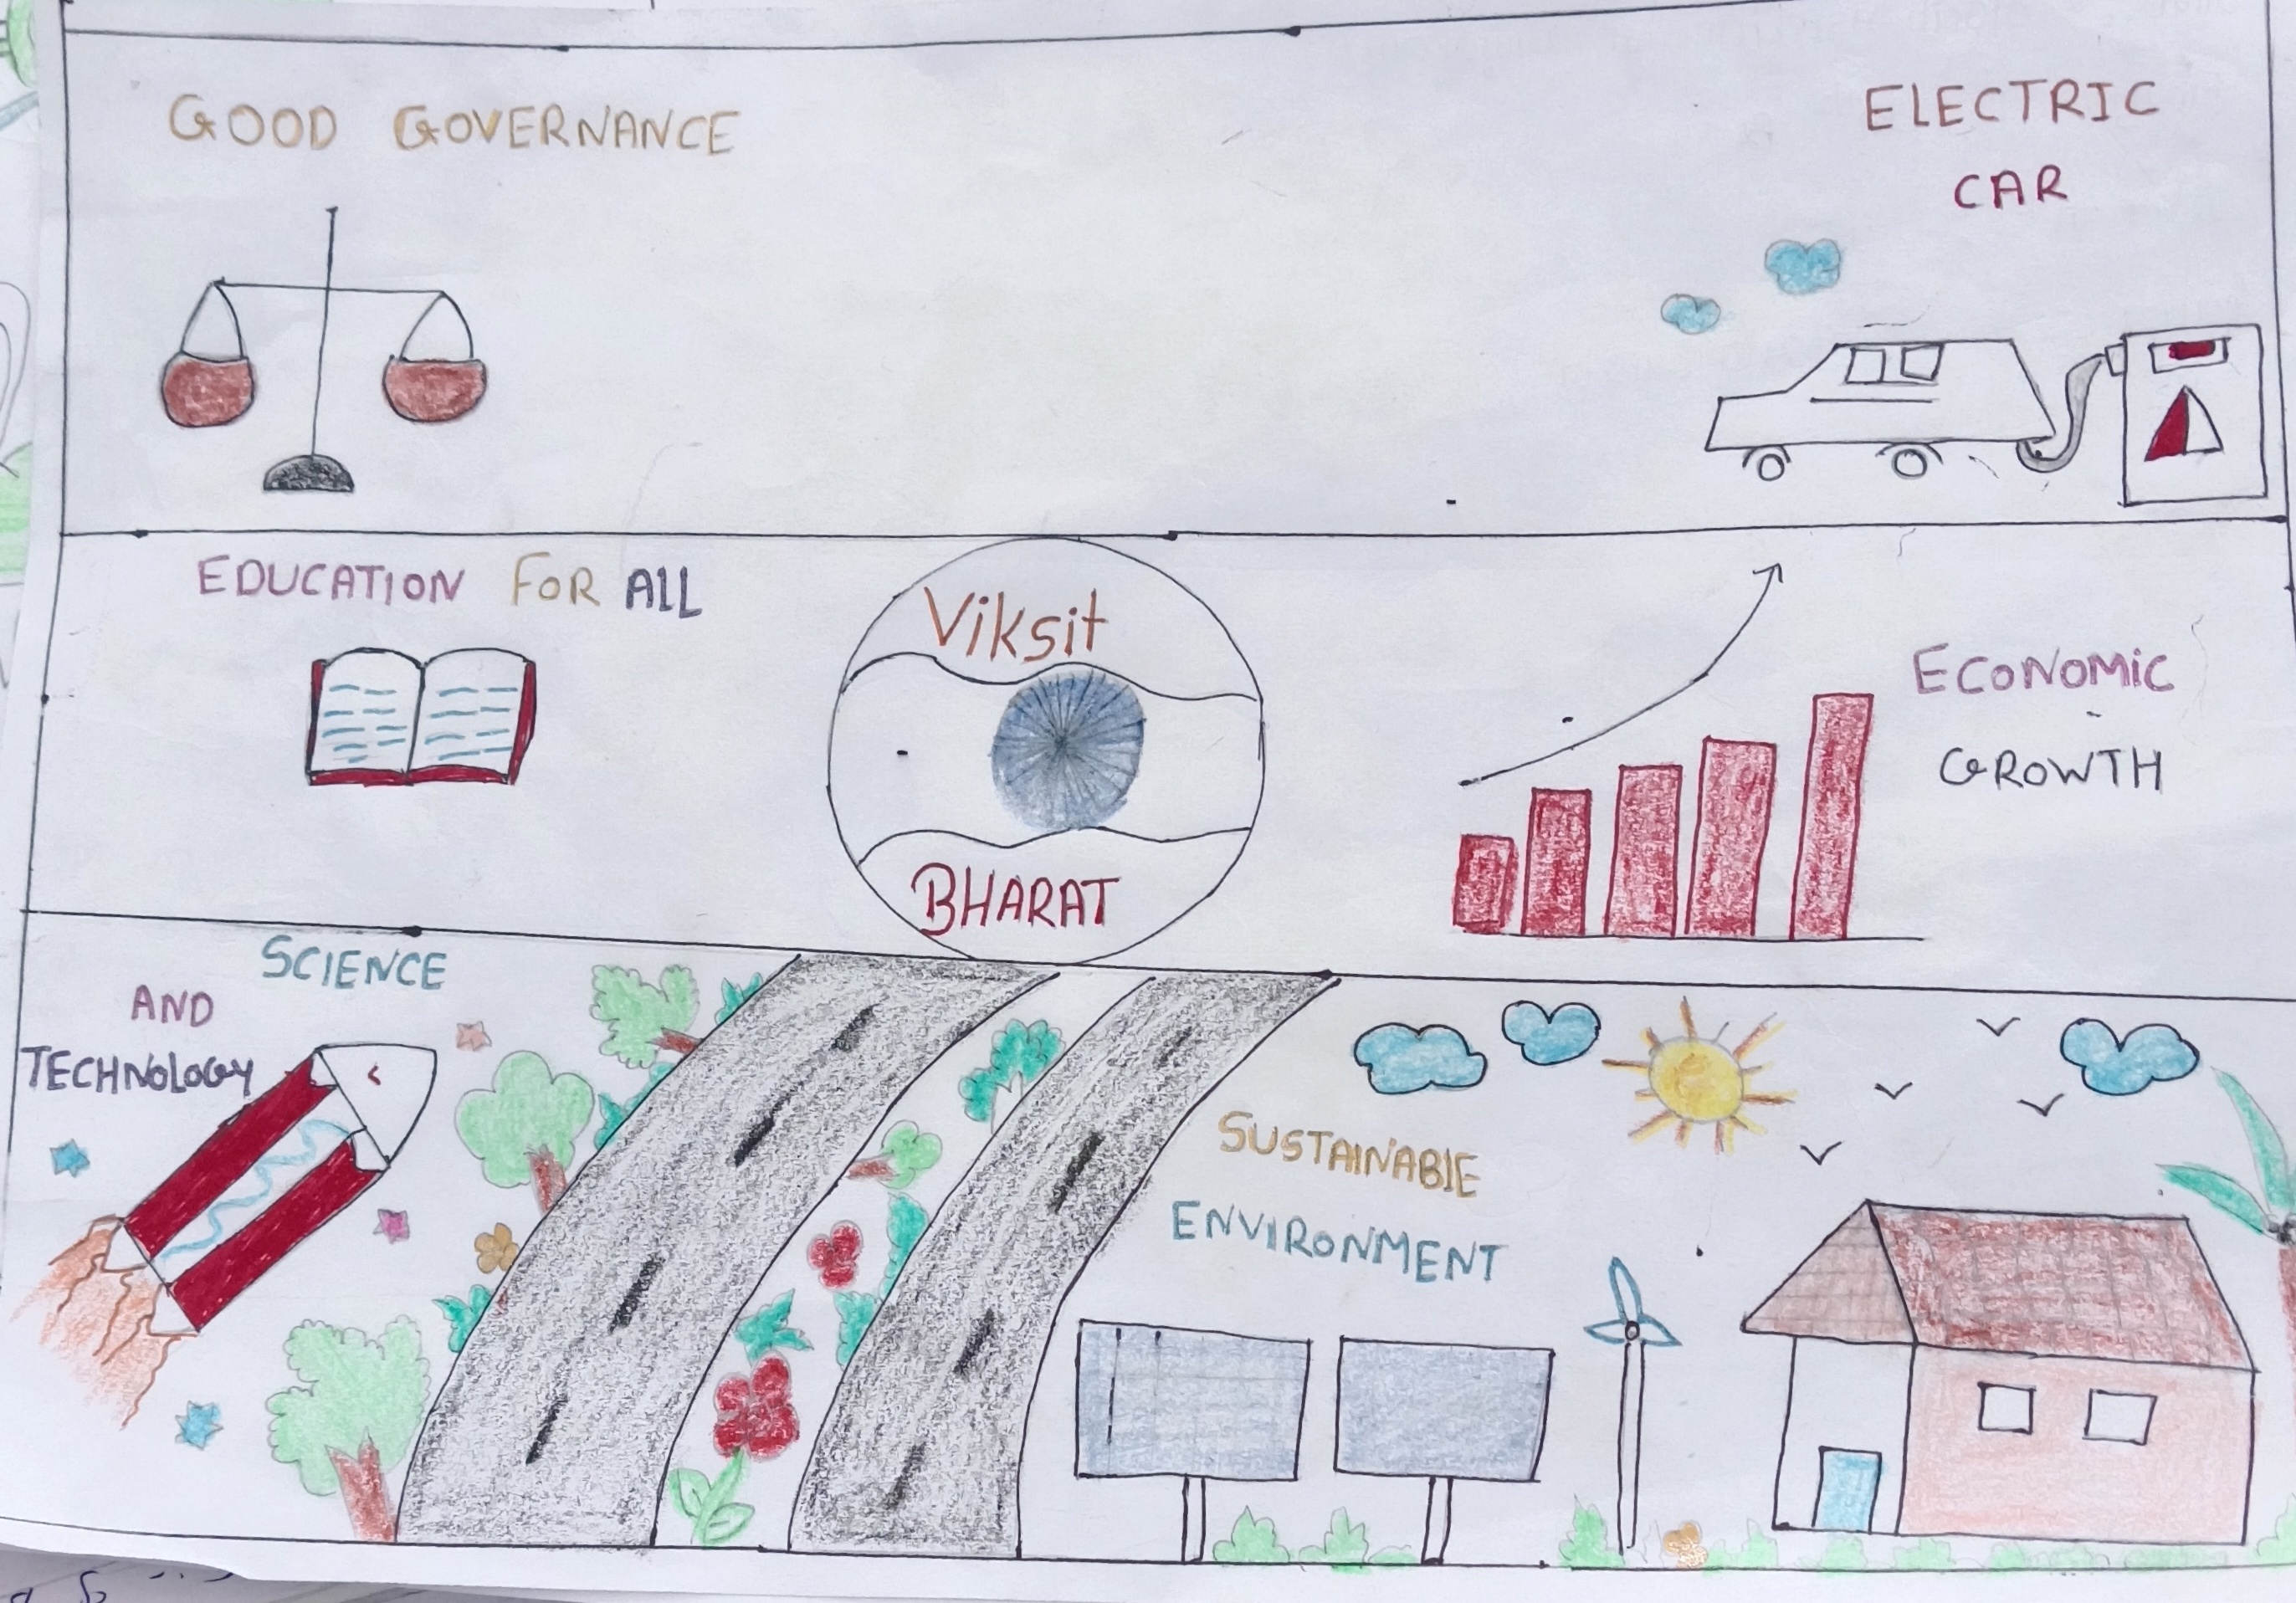 GOOD GOVERNANCE
ELECTRIC
CAR
EDUCATION FOR ALL
Viksit
BHARAT
ECONOMIC
GROWTH
SCIENCE
AND
TECHNOLOGY
SUSTAINABLE
ENVIRONMENT